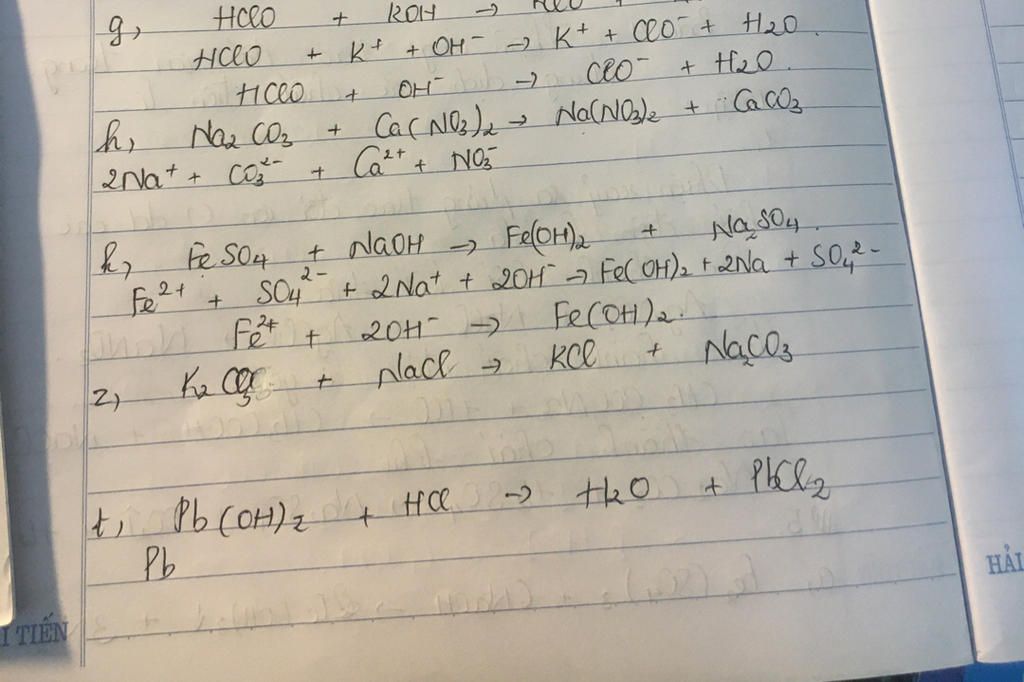 g, HClO + KOH →
HClO + K⁺ + OH⁻ → K⁺ + ClO⁻ + H2O.
HClO + OH⁻ → ClO⁻ + H2O.
h, Na₂CO₃ + Ca(NO₃)₂ → Na(NO₃)₂ + CaCO₃
2Na⁺ + CO₃²⁻ + Ca²⁺ + NO₃⁻
k, FeSO₄ + NaOH → Fe(OH)₂ + Na₂SO₄.
Fe²⁺ + SO₄²⁻ + 2Na⁺ + 2OH⁻ → Fe(OH)₂ + 2Na + SO₄²⁻
Fe²⁺ + 2OH⁻ → Fe(OH)₂.
z, K₂CO₃ + NaCl → KCl + Na₂CO₃
t, Pb(OH)₂ + HCl → H₂O + PbCl₂
Pb
HẢI
TIẾN